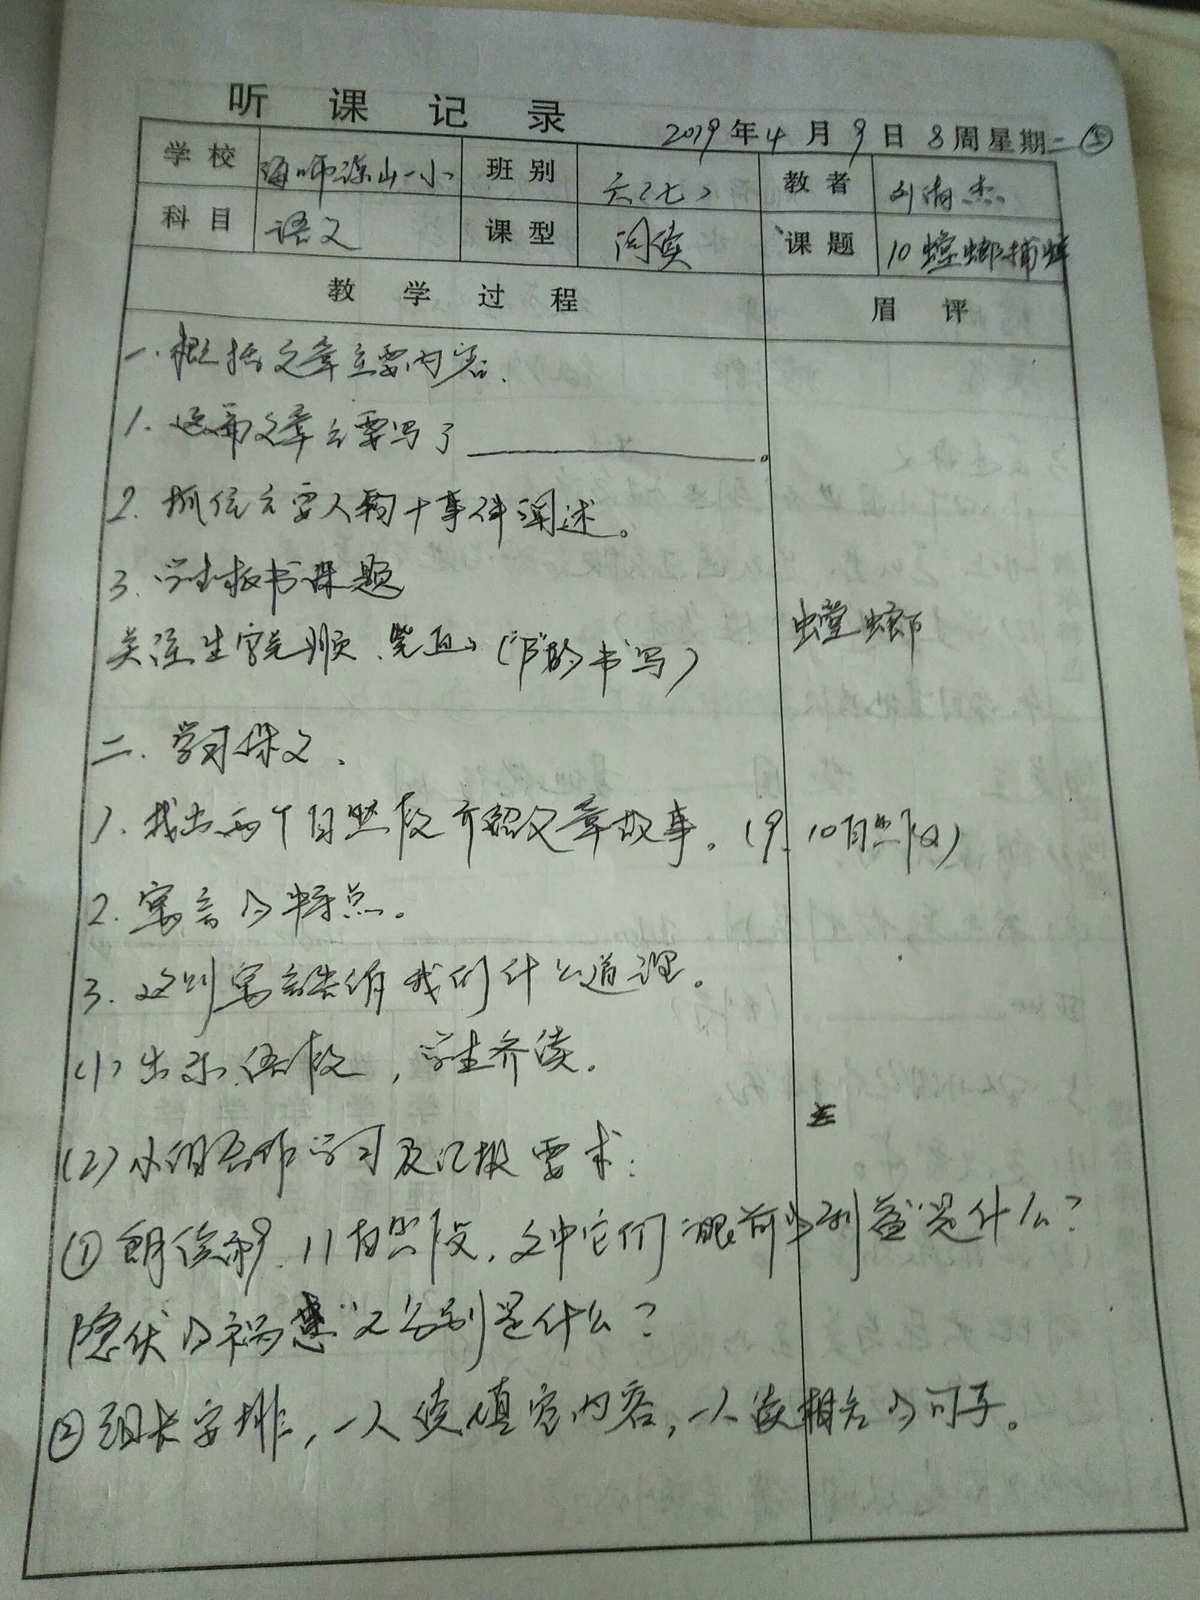 听课记录
2019年4月9日8周星期二 ⑤
学校 海师滦山一小 班别 六(七) 教者 刘海杰
科目 语文 课型 阅读 课题 10 螳螂捕蝉
教学过程 眉评
一.概括文章主要内容.
1.这篇文章主要写了____________。
2.抓住主要人物+事件阐述。
3.学生板书课题
关注生字笔顺、笔画(“阝”的书写) 螳螂
二.学习课文、
1.找出两个自然段介绍文章故事。(9、10自然段)
2.寓言的特点。
3.这则寓言告诉我们什么道理。
(1)出示语段,学生齐读。
(2)小组合作学习及汇报要求:
①朗读第9、11自然段,文中它们“眼前的利益”是什么?
隐伏的祸患”又分别是什么?
②组长安排,一人读填空内容,一人读相关的句子。